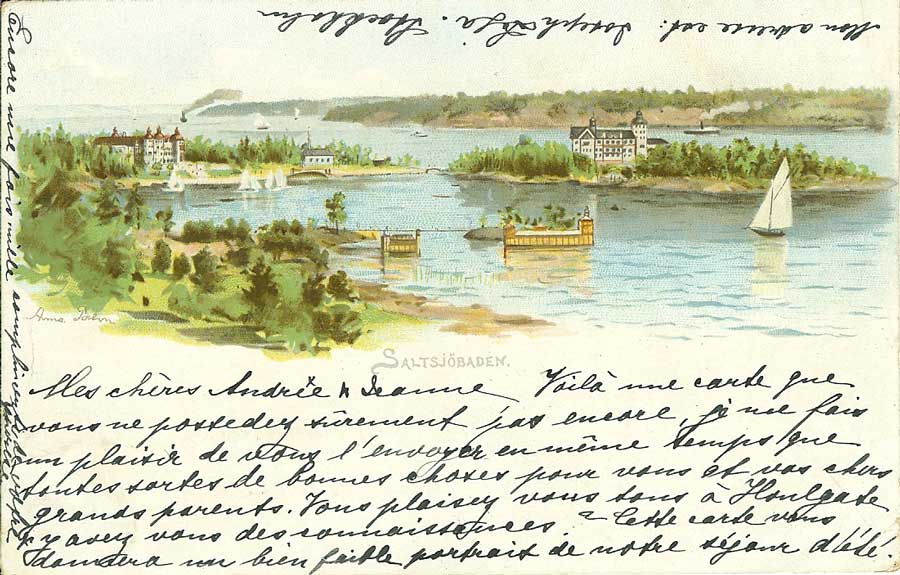 Mon adresse est: Joseph Loja. Stockholm
SALTSJÖBADEN.
Mes chères Andrée & Jeanne Voilà une carte que
vous ne possedez sûrement pas encore, je me fais
un plaisir de vous l'envoyer en même temps que
toutes sortes de bonnes choses pour vous et vos chers
grands parents. Vous plaisez vous tous à Houlgate
& y avez vous des connaissances? Cette carte vous
donnera un bien faible portrait de notre séjour d'été.
Encore une fois mille compliments de